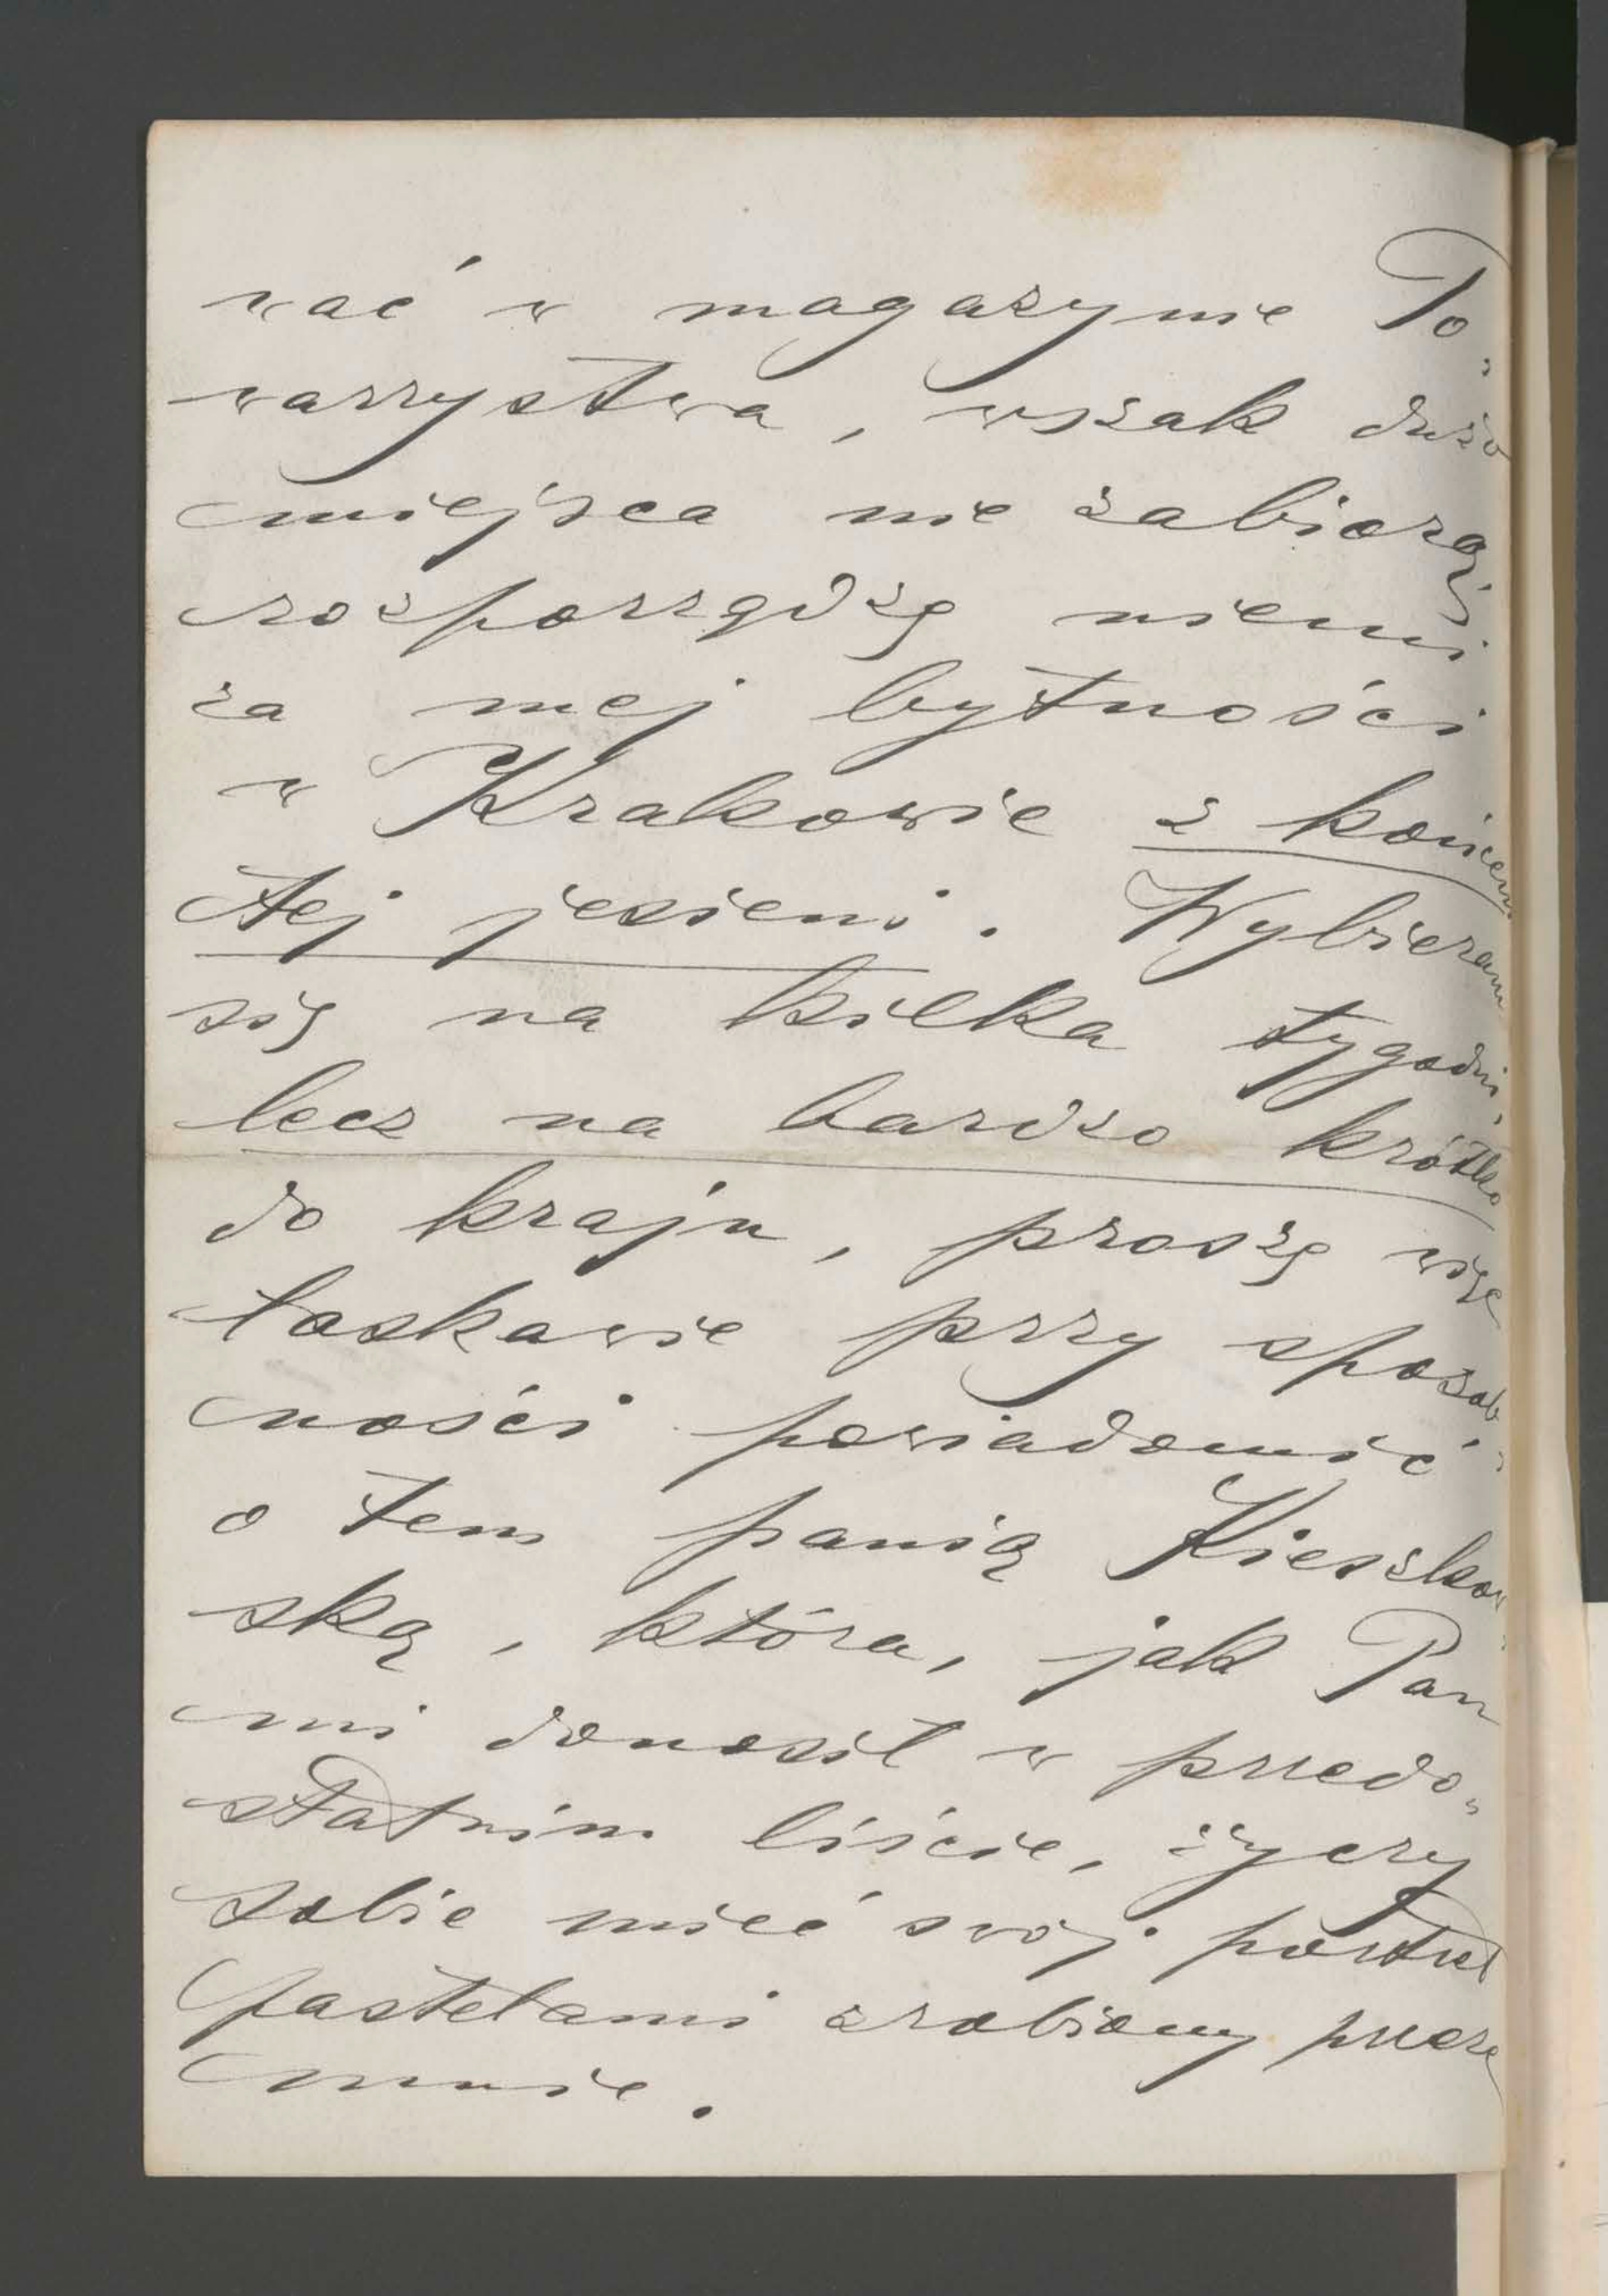 wać w magazynie To-
warzystwa, wszak dużo
miejsca nie zabiorą i
rozporządzę niemi
za mej bytności
w Krakowie z końcem
tej jesieni. Wybieram
się na kilka tygodni,
lecz na bardzo krótko
do kraju, proszę więc
łaskawie przy sposob-
ności powiadomić
o tem panią Kieszkow-
ską, która, jak Pan
mi donosił w przedo-
statnim liście, życzy
sobie mieć swój portret
pastelami zrobiony przeze
mnie.